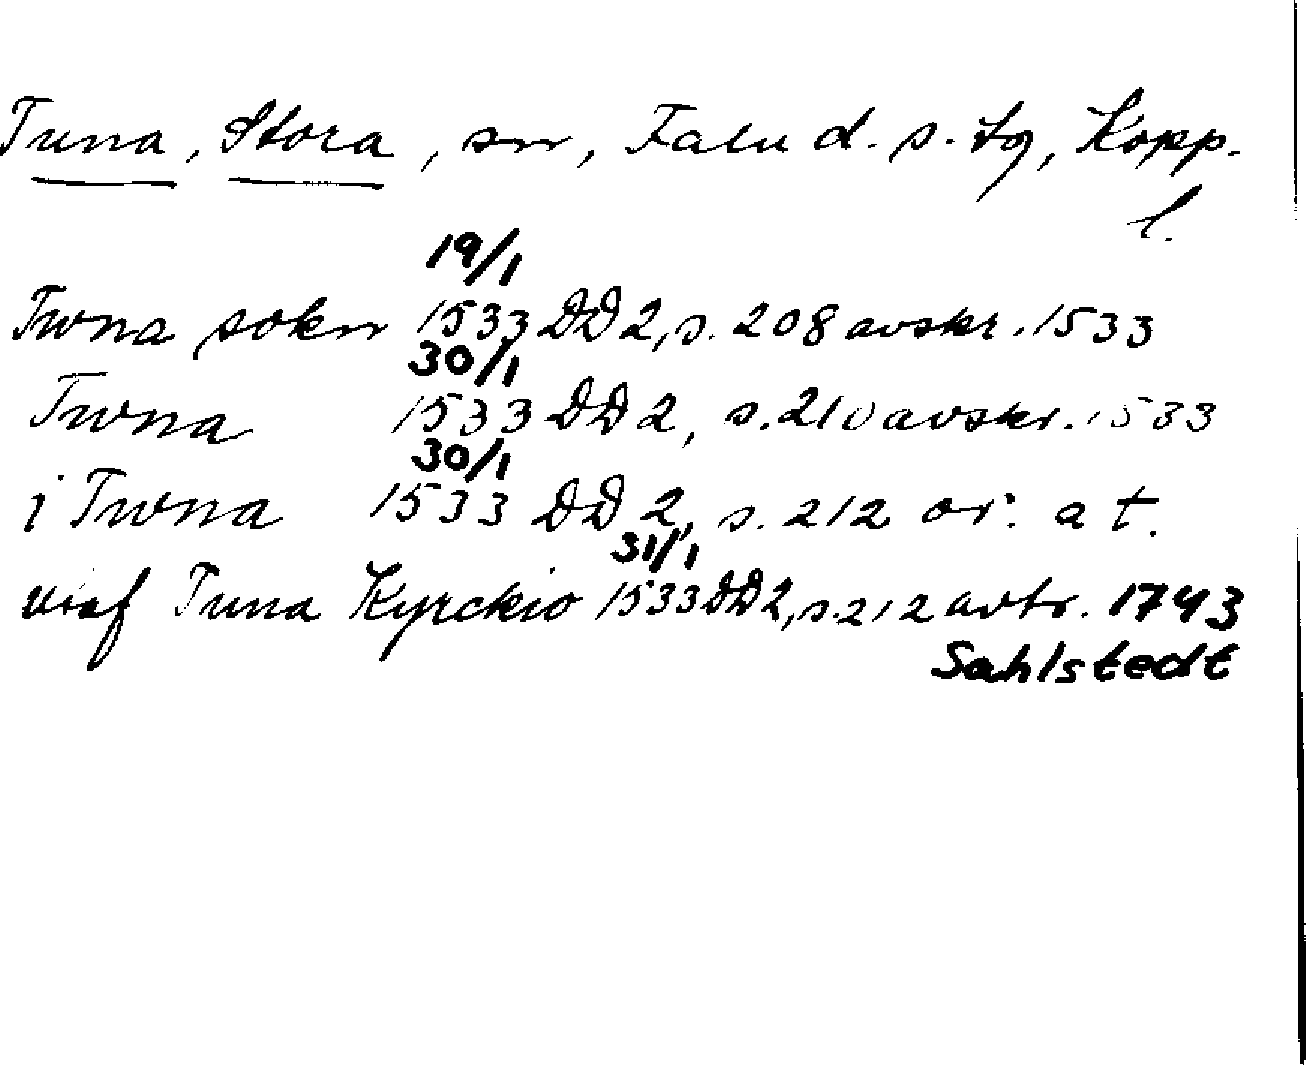 Tuna, Stora, sn, Falu d. s. tg, Kopp.
l.
19/1
Twna sokn 1533 DD 2, s. 208 avskr. 1533
30/1
Twna 1533 DD 2, s. 210 avskr. 1533
30/1
i Twna 1533 DD 2, s. 212 or. a t.
31/1
uiaf Tuna Kyrckio 1533 DD 2, s. 212 avtr. 1743
Sahlstedt